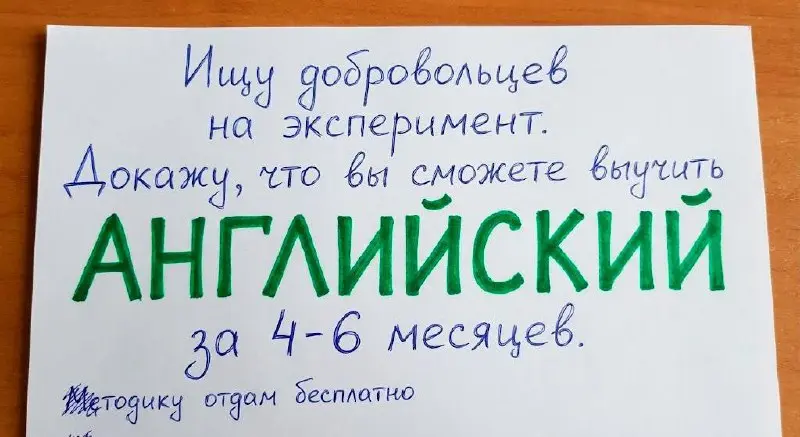 Ищу добровольцев
на эксперимент.
Докажу, что вы сможете выучить
АНГЛИЙСКИЙ
за 4-6 месяцев.
Методику отдам бесплатно